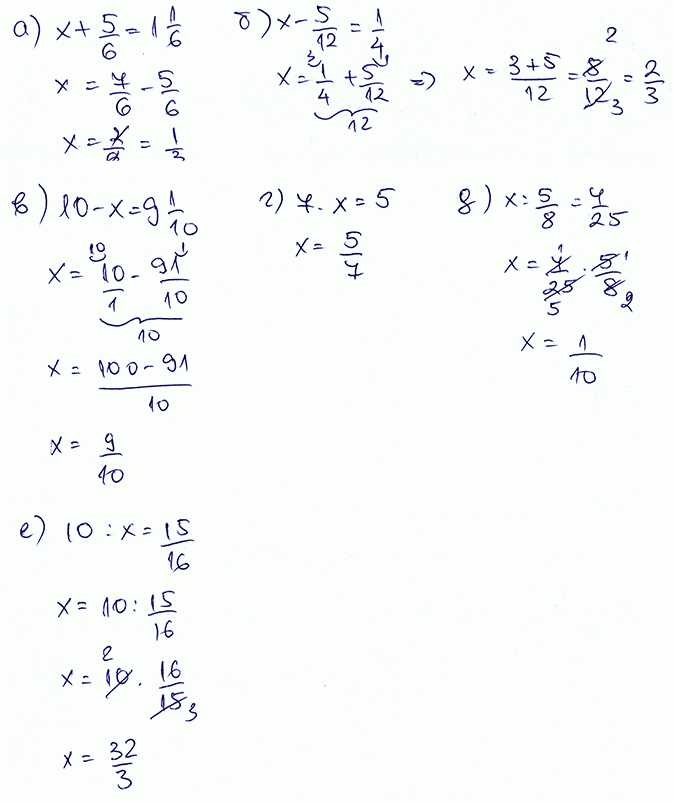 а) x + 5/6 = 1 1/6
x = 7/6 - 5/6
x = 2/6 = 1/3
б) x - 5/12 = 1/4
x = 1/4 + 5/12 => x = (3+5)/12 = 8/12 = 2/3
3 1
12
2
3
в) 10 - x = 9 1/10
x = 10/1 - 91/10
10 1
10
x = (100 - 91)/10
x = 9/10
г) 7 · x = 5
x = 5/7
д) x : 5/8 = 4/25
x = 4/25 · 5/8
1 1
5 2
x = 1/10
е) 10 : x = 15/16
x = 10 : 15/16
x = 10 · 16/15
2
3
x = 32/3